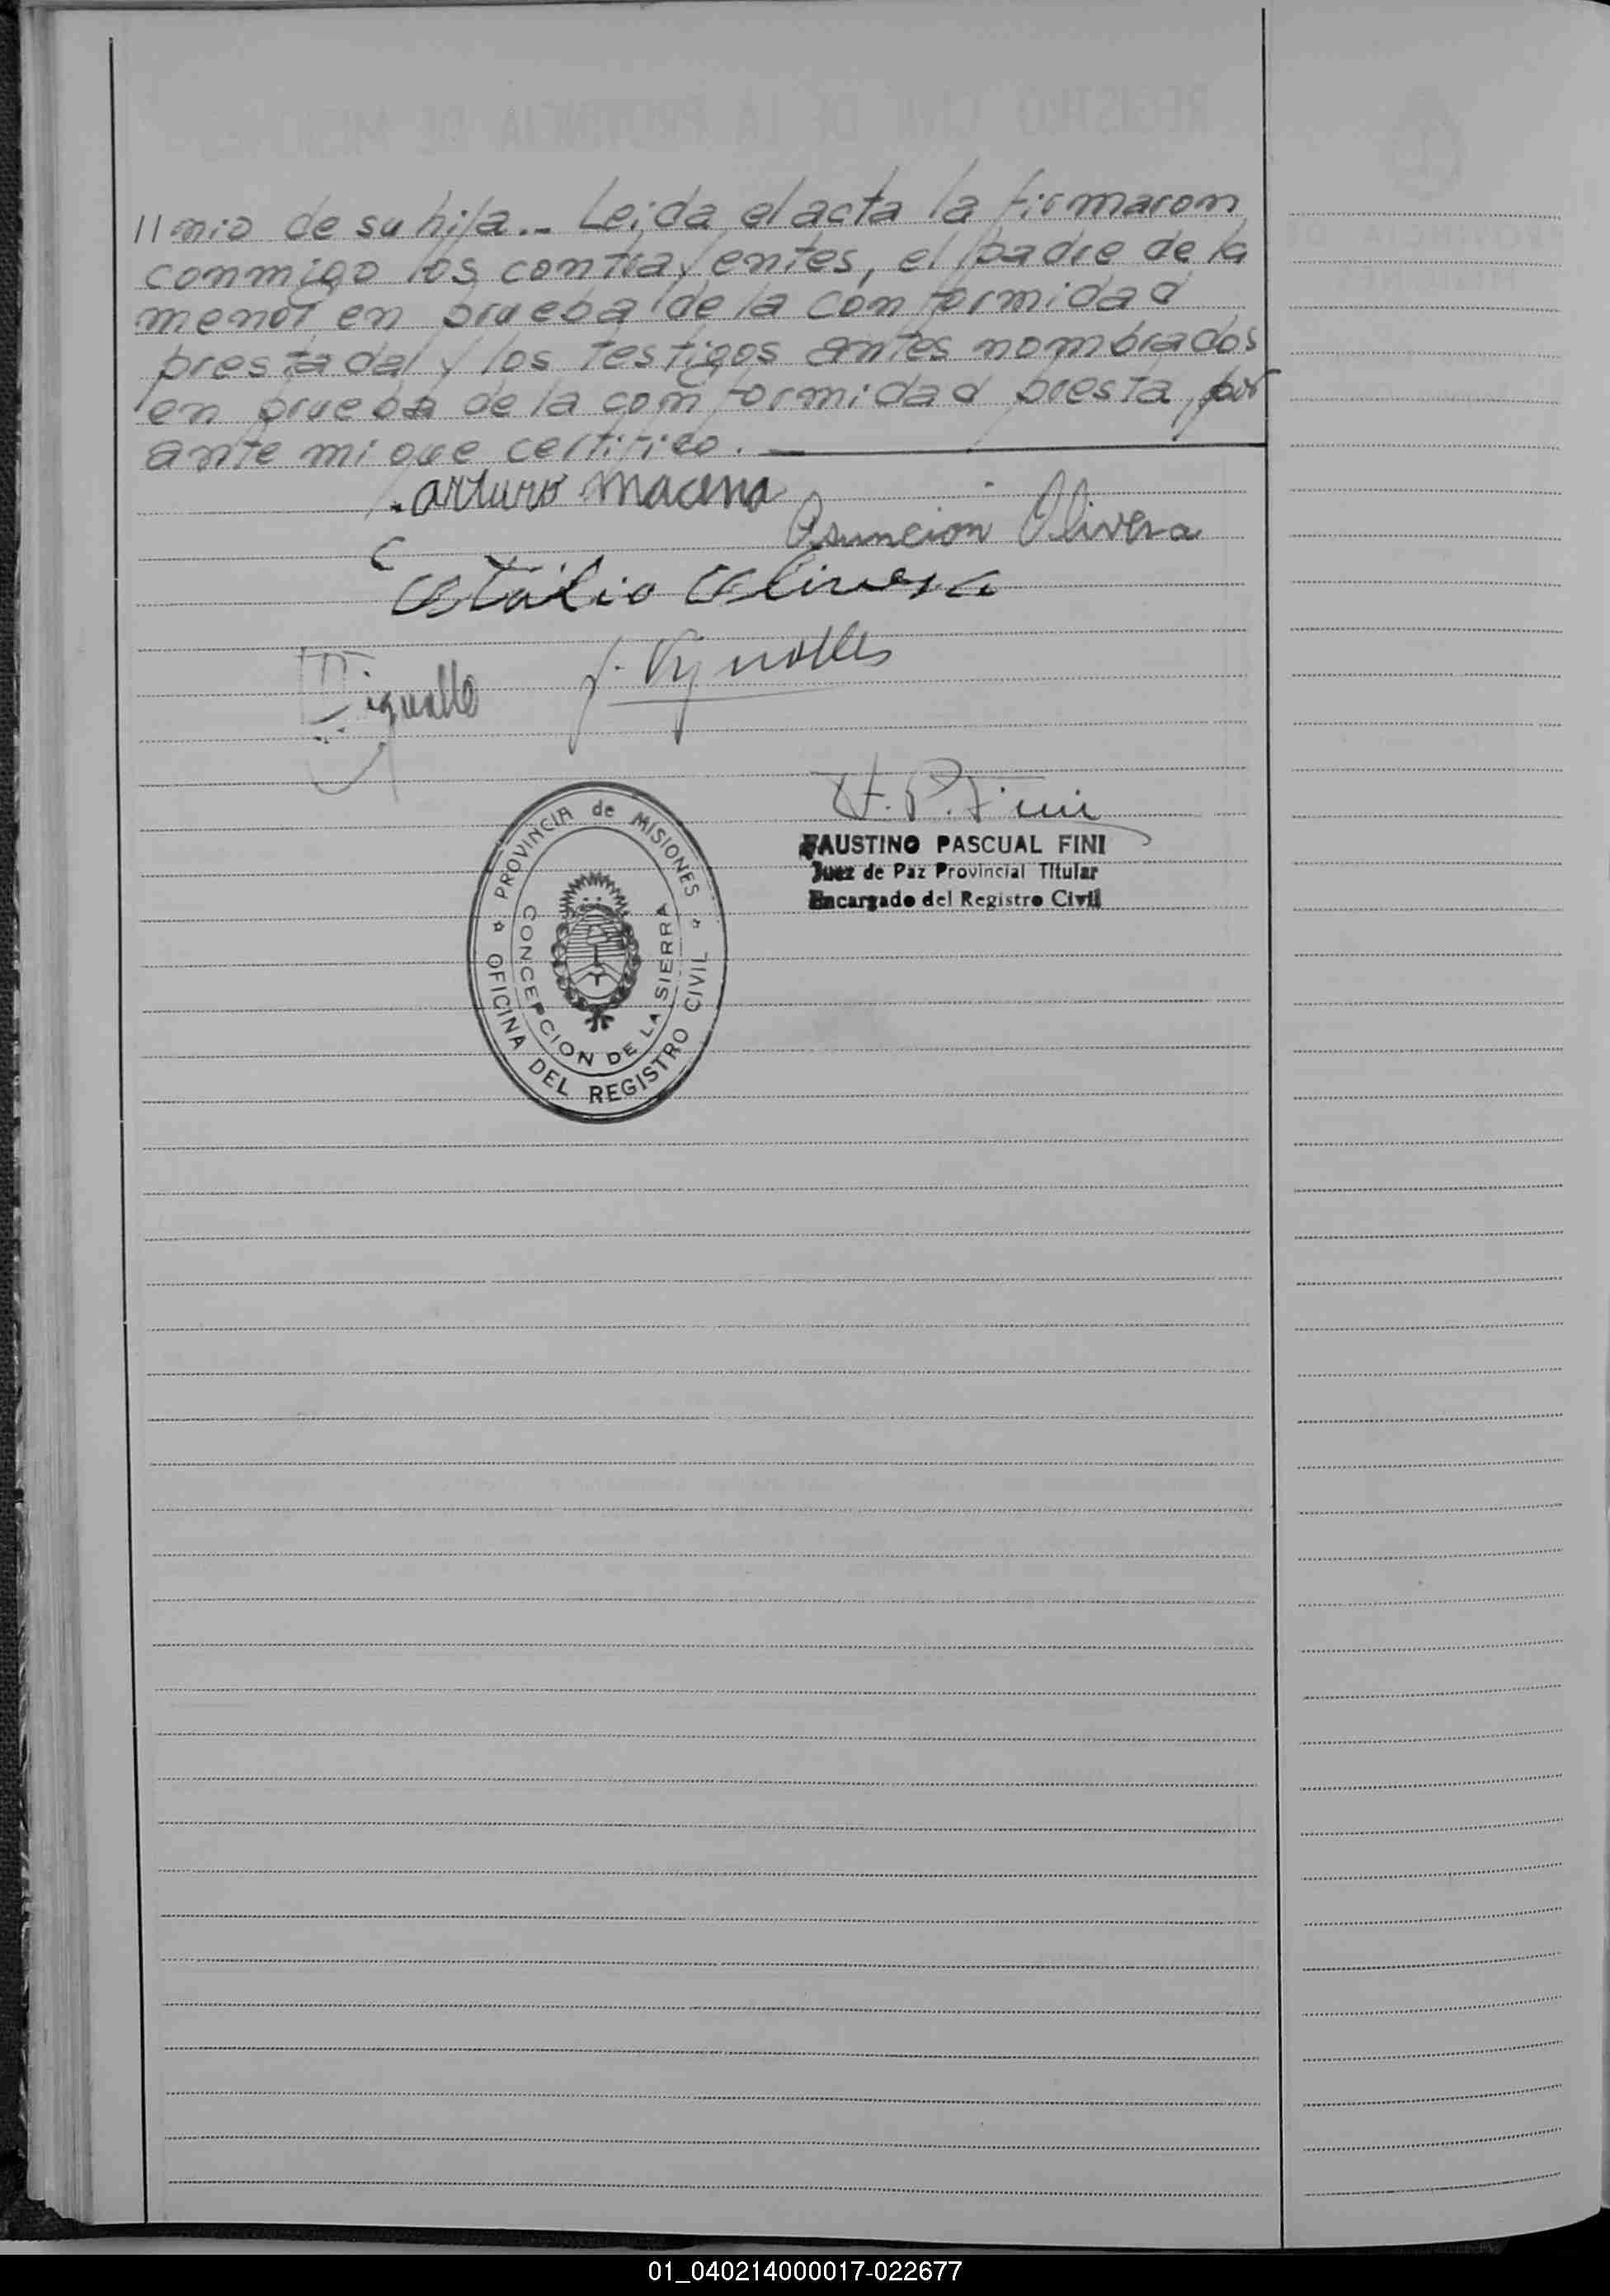 //mio de su hija.. Leida el acta la firmaron
conmigo los contrayentes, el padre de la
menor en prueba de la conformidad
prestada y los testigos antes nombrados
en prueba de la conformidad presta, por
ante mi que certifico.
arturo macena
Asuncion Olivera
Olivera
J. Vignolles
F. P. Fini
FAUSTINO PASCUAL FINI
Juez de Paz Provincial Titular
Encargado del Registro Civil
PROVINCIA de MISIONES
OFICINA DEL REGISTRO CIVIL
CONCEPCION DE LA SIERRA
01_040214000017-022677